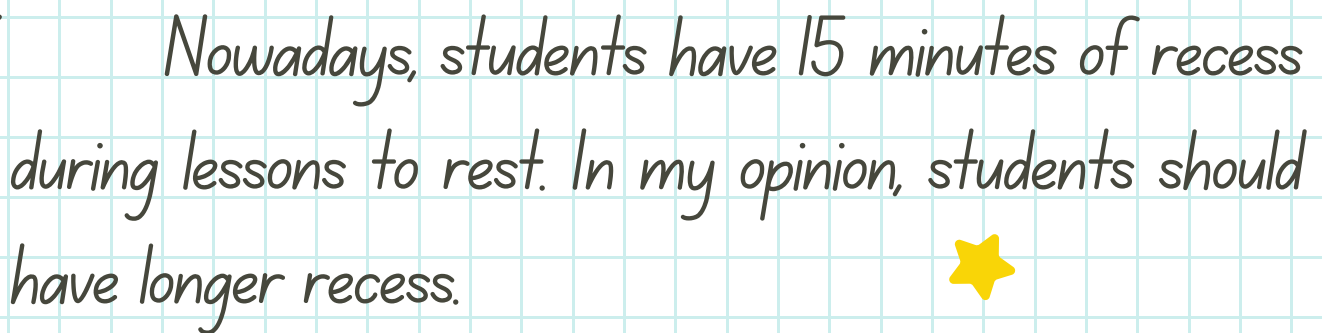 Nowadays, students have 15 minutes of recess
during lessons to rest. In my opinion, students should
have longer recess.